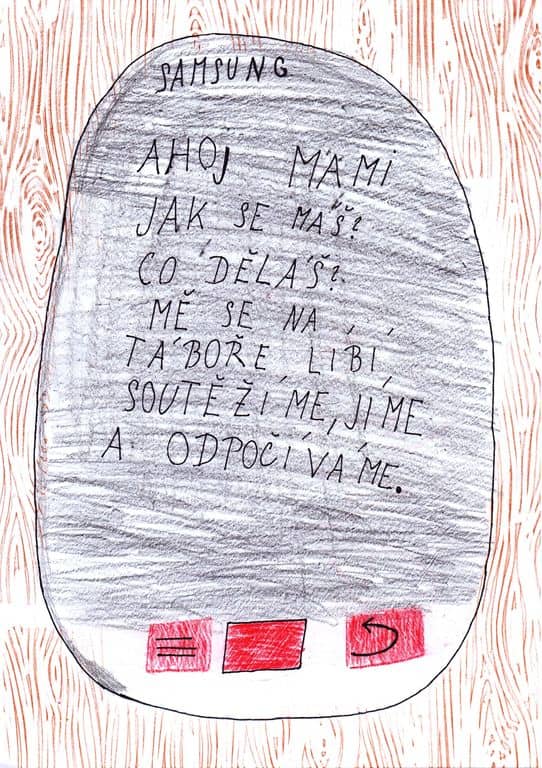 SAMSUNG
AHOJ MÁMI
JAK SE MÁŠ?
CO DĚLÁŠ?
MĚ SE NA
TÁBOŘE LÍBÍ,
SOUTĚŽÍME, JÍME
A ODPOČÍVÁME.